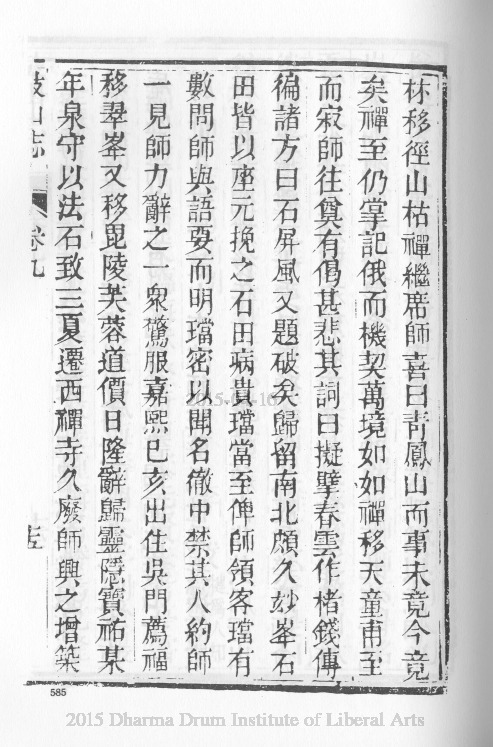 林移徑山枯禪繼席師喜曰青鳳山而事未竟今竟
矣禪至仍掌記俄而機契萬境如如禪移天童甫至
而寂師往奠有偈甚悲其詞曰擬擘春雲作楮錢傳
徧諸方曰石屏風又題破矣歸留南北頗久妙峯石
田皆以座元挽之石田病貴璫當至俾師領客璫有
數問師與語要而明璫密以聞名徹中禁其人約師
一見師力辭之一衆驚服嘉熙己亥出住吳門薦福
移翠峯又移毘陵芙蓉道價日隆辭歸靈隱寶祐某
年泉守以法石致三夏遷西禪寺久廢師興之增築
鼓山志
卷九
585
2015 Dharma Drum Institute of Liberal Arts